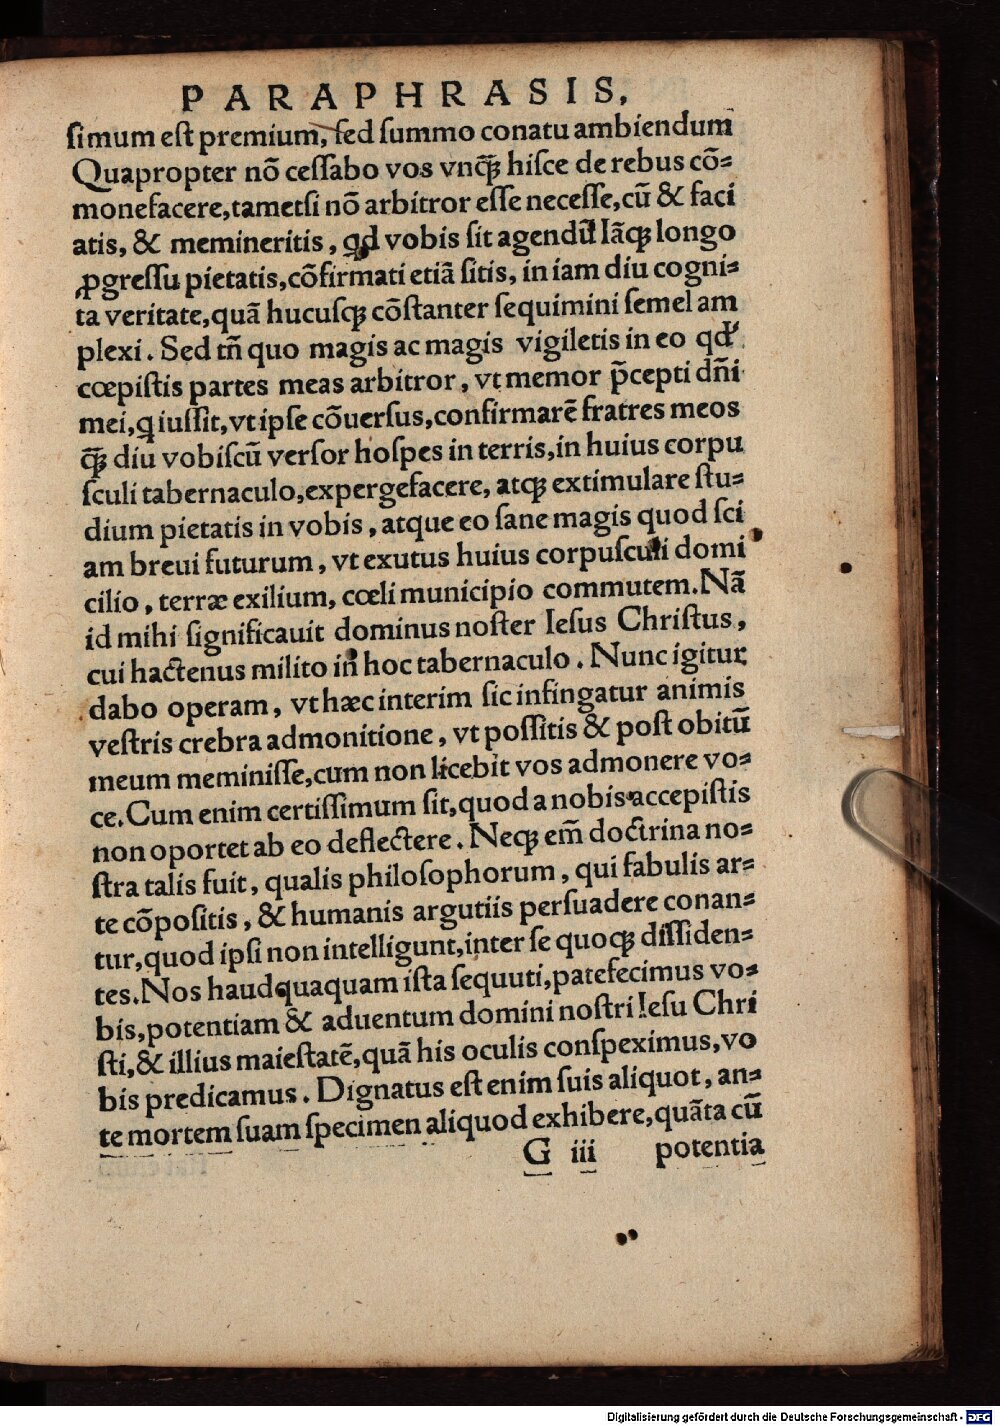 PARAPHRASIS.
ſimum eſt premium, ſed ſummo conatu ambiendum
Quapropter nõ ceſſabo vos vnꝗ̃ hiſce de rebus cõ⸗
monefacere, tametſi nõ arbitror eſſe neceſſe, cũ & faci
atis, & memineritis, qd vobis ſit agendũ Iãqꝫ longo
ꝓgreſſu pietatis, cõfirmati etiã ſitis, in iam diu cogni⸗
ta veritate, quã hucuſqꝫ cõſtanter ſequimini ſemel am
plexi. Sed tñ quo magis ac magis vigiletis in eo qd
cœpiſtis partes meas arbitror, vt memor p̃cepti dñi
mei, q iuſſit, vt ipſe cõuerſus, confirmarẽ fratres meos
ꝗ̃ diu vobiſcũ verſor hoſpes in terris, in huius corpu
ſculi tabernaculo, expergefacere, atqꝫ extimulare ſtu⸗
dium pietatis in vobis, atque eo ſane magis quod ſci
am breui futurum, vt exutus huius corpuſculi domi
cilio, terræ exilium, cœli municipio commutem. Nã
id mihi ſignificauit dominus noſter Ieſus Chriſtus,
cui hactenus milito in hoc tabernaculo. Nunc igitur
dabo operam, vt hæc interim ſic infingatur animis
veſtris crebra admonitione, vt poſſitis & poſt obitũ
meum meminiſſe, cum non licebit vos admonere vo⸗
ce. Cum enim certiſſimum ſit, quod a nobis accepiſtis
non oportet ab eo deflectere. Neqꝫ em̃ doctrina no⸗
ſtra talis fuit, qualis philoſophorum, qui fabulis ar⸗
te cõpoſitis, & humanis argutiis perſuadere conan⸗
tur, quod ipſi non intelligunt, inter ſe quoqꝫ diſſiden⸗
tes. Nos haudquaquam iſta ſequuti, patefecimus vo⸗
bis, potentiam & aduentum domini noſtri Ieſu Chri
ſti, & illius maieſtatẽ, quã his oculis conſpeximus, vo
bis predicamus. Dignatus eſt enim ſuis aliquot, an⸗
te mortem ſuam ſpecimen aliquod exhibere, quãta cũ
G iii potentia
Digitalisierung gefördert durch die Deutsche Forschungsgemeinschaft - DFG